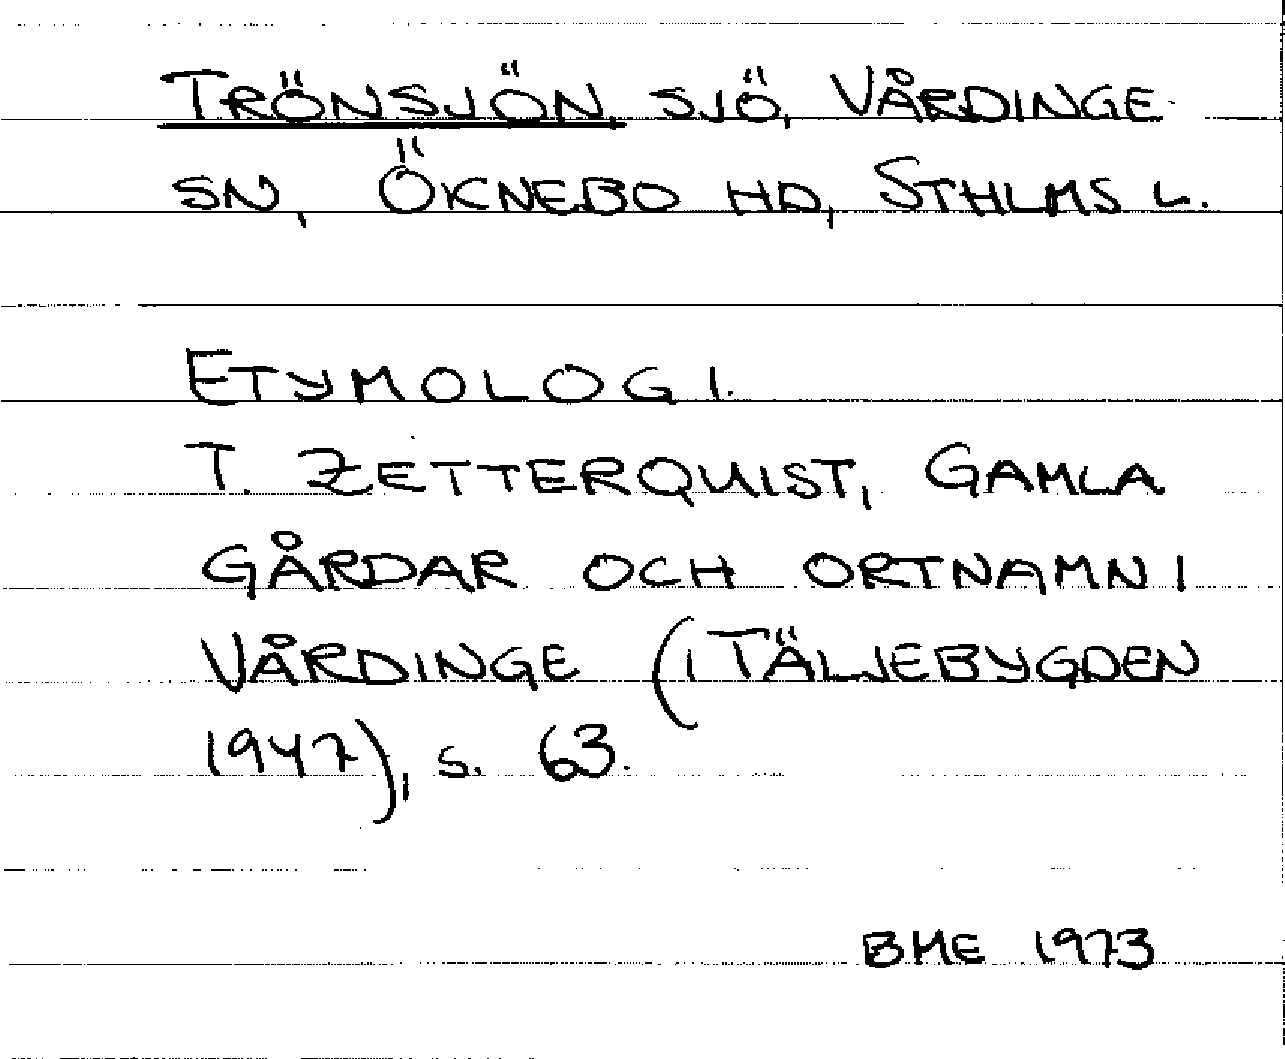 TRÖNSJÖN, SJÖ, VÅRDINGE
SN, ÖKNEBO HD, STHLMS L.
ETYMOLOGI.
T. ZETTERQUIST, GAMLA
GÅRDAR OCH ORTNAMN I
VÅRDINGE (I TÄLJEBYGDEN
1947), S. 63.
BME 1973